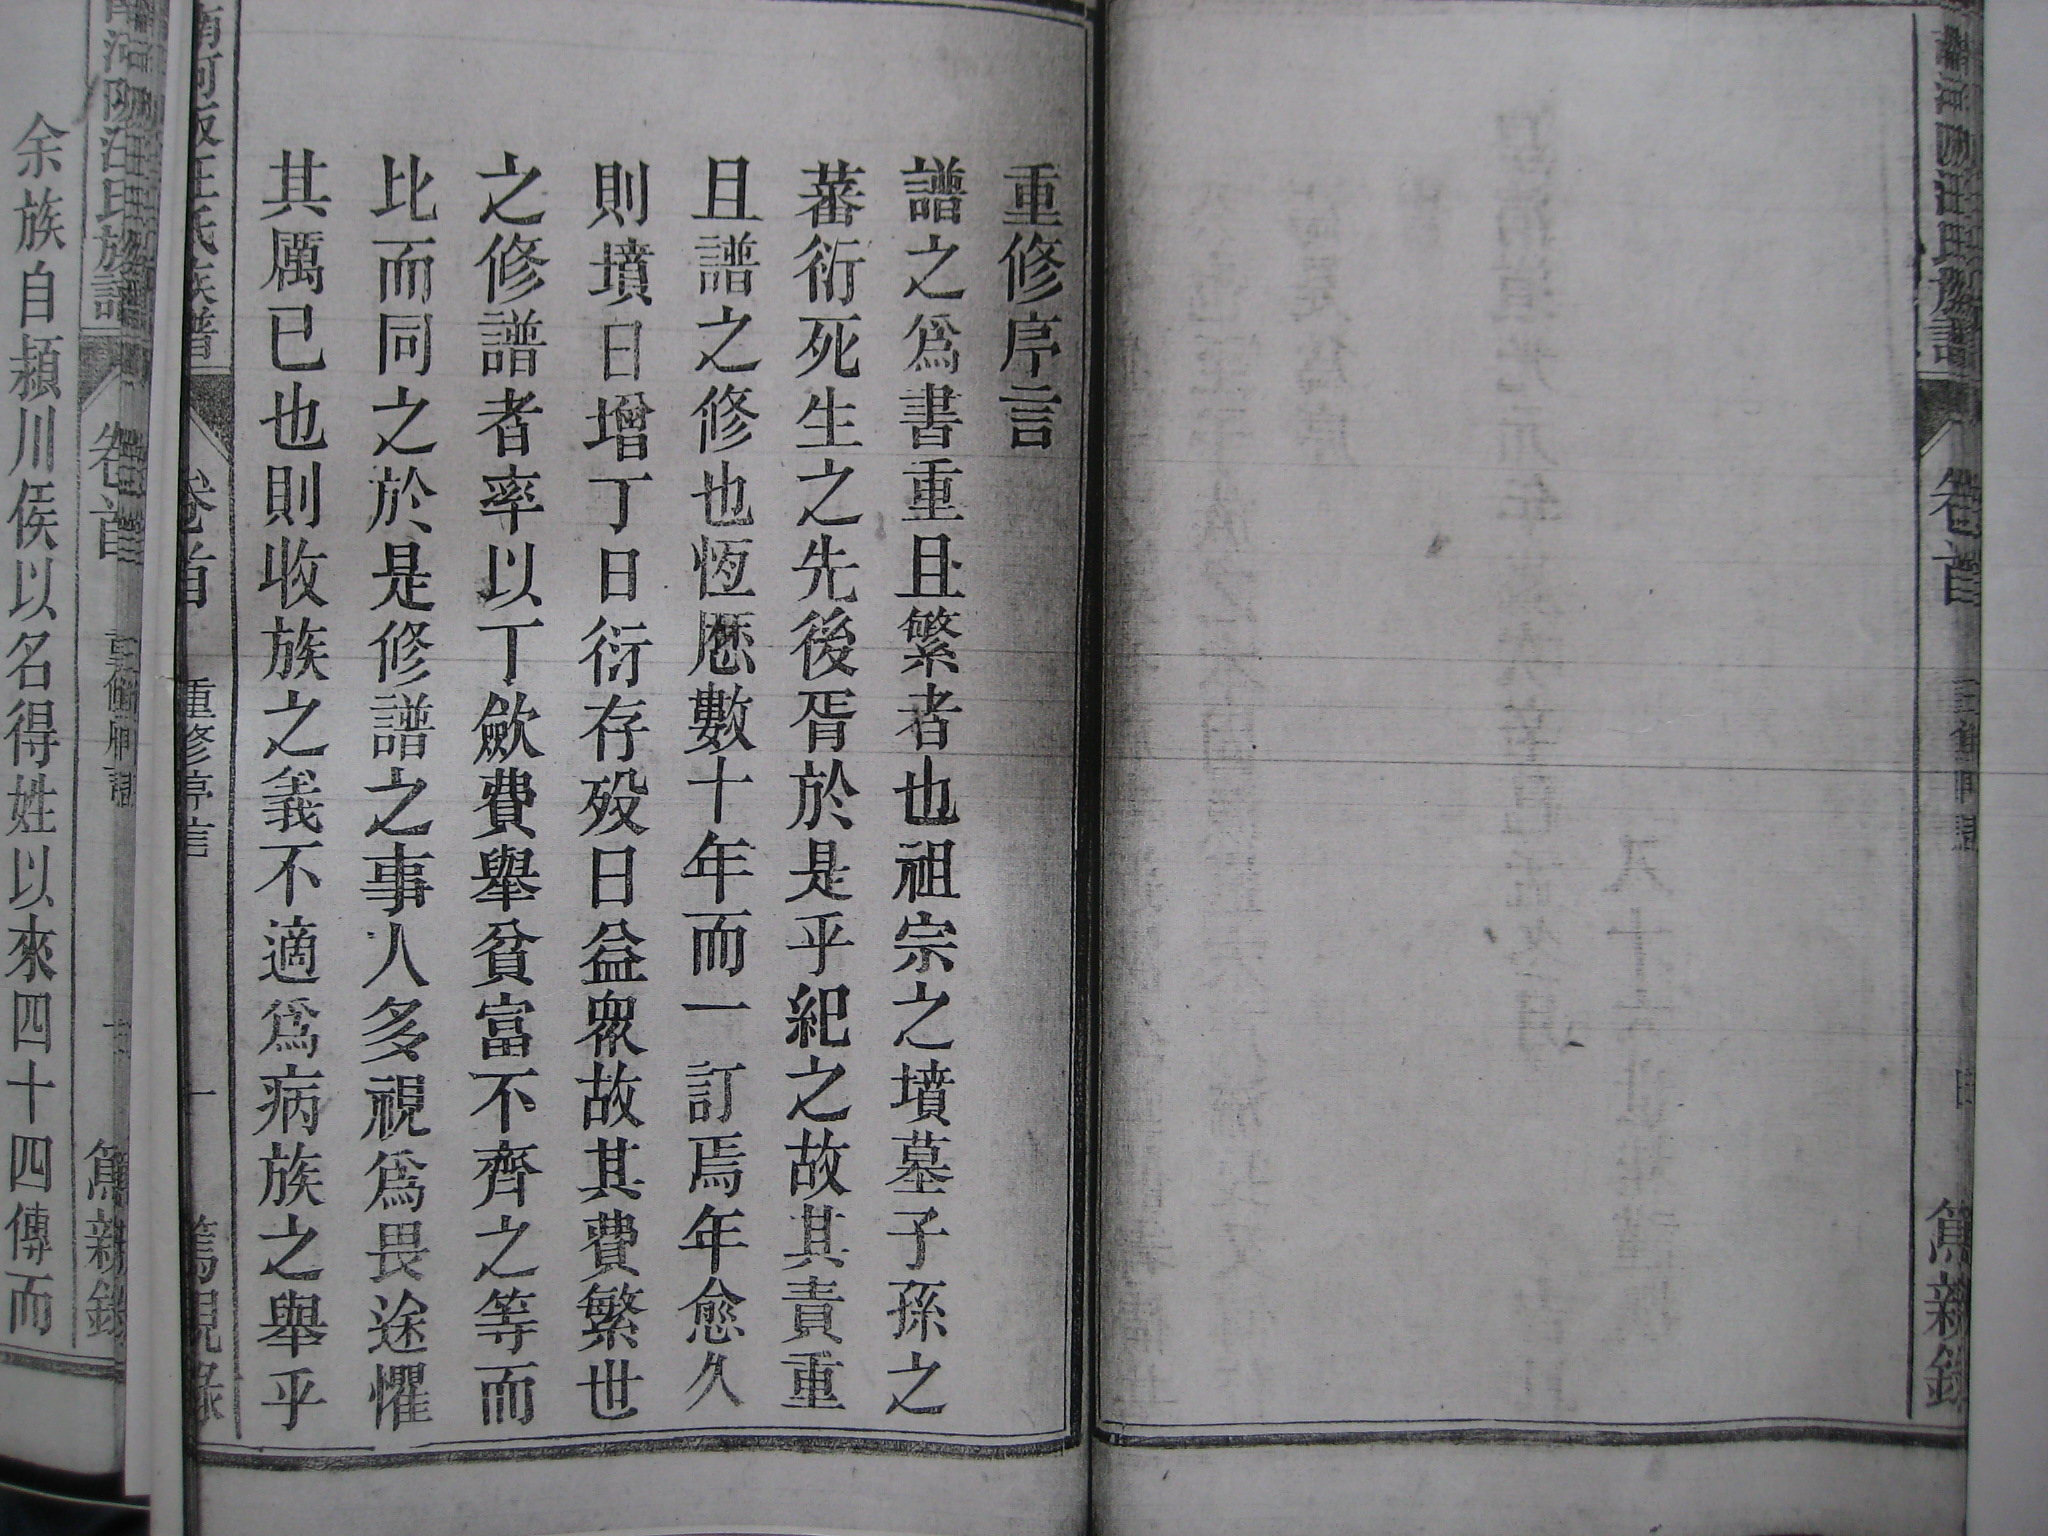 汪氏族譜
卷首
篤親錄
重修序言
譜之爲書重且繁者也祖宗之墳墓子孫之
蕃衍死生之先後胥於是乎紀之故其責重
且譜之修也恆歷數十年而一訂焉年愈久
則墳日增丁日衍存歿日益衆故其費繁世
之修譜者率以丁歛費舉貧富不齊之等而
比而同之於是修譜之事人多視爲畏途懼
其厲已也則收族之義不適爲病族之舉乎
汪氏族譜
卷首
重修序言
一
篤親錄
汪氏族譜
卷首
篤親錄
余族自潁川侯以名得姓以來四十四傳而